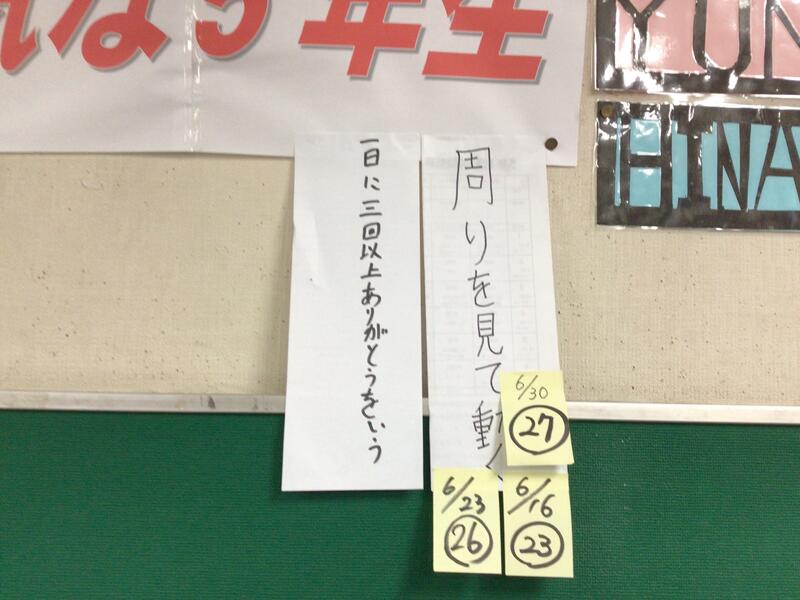 れな5年生
YUN
HINA
周りを見て動く
一日に三回以上ありがとうをいう
6/30
27
6/23
26
6/16
23